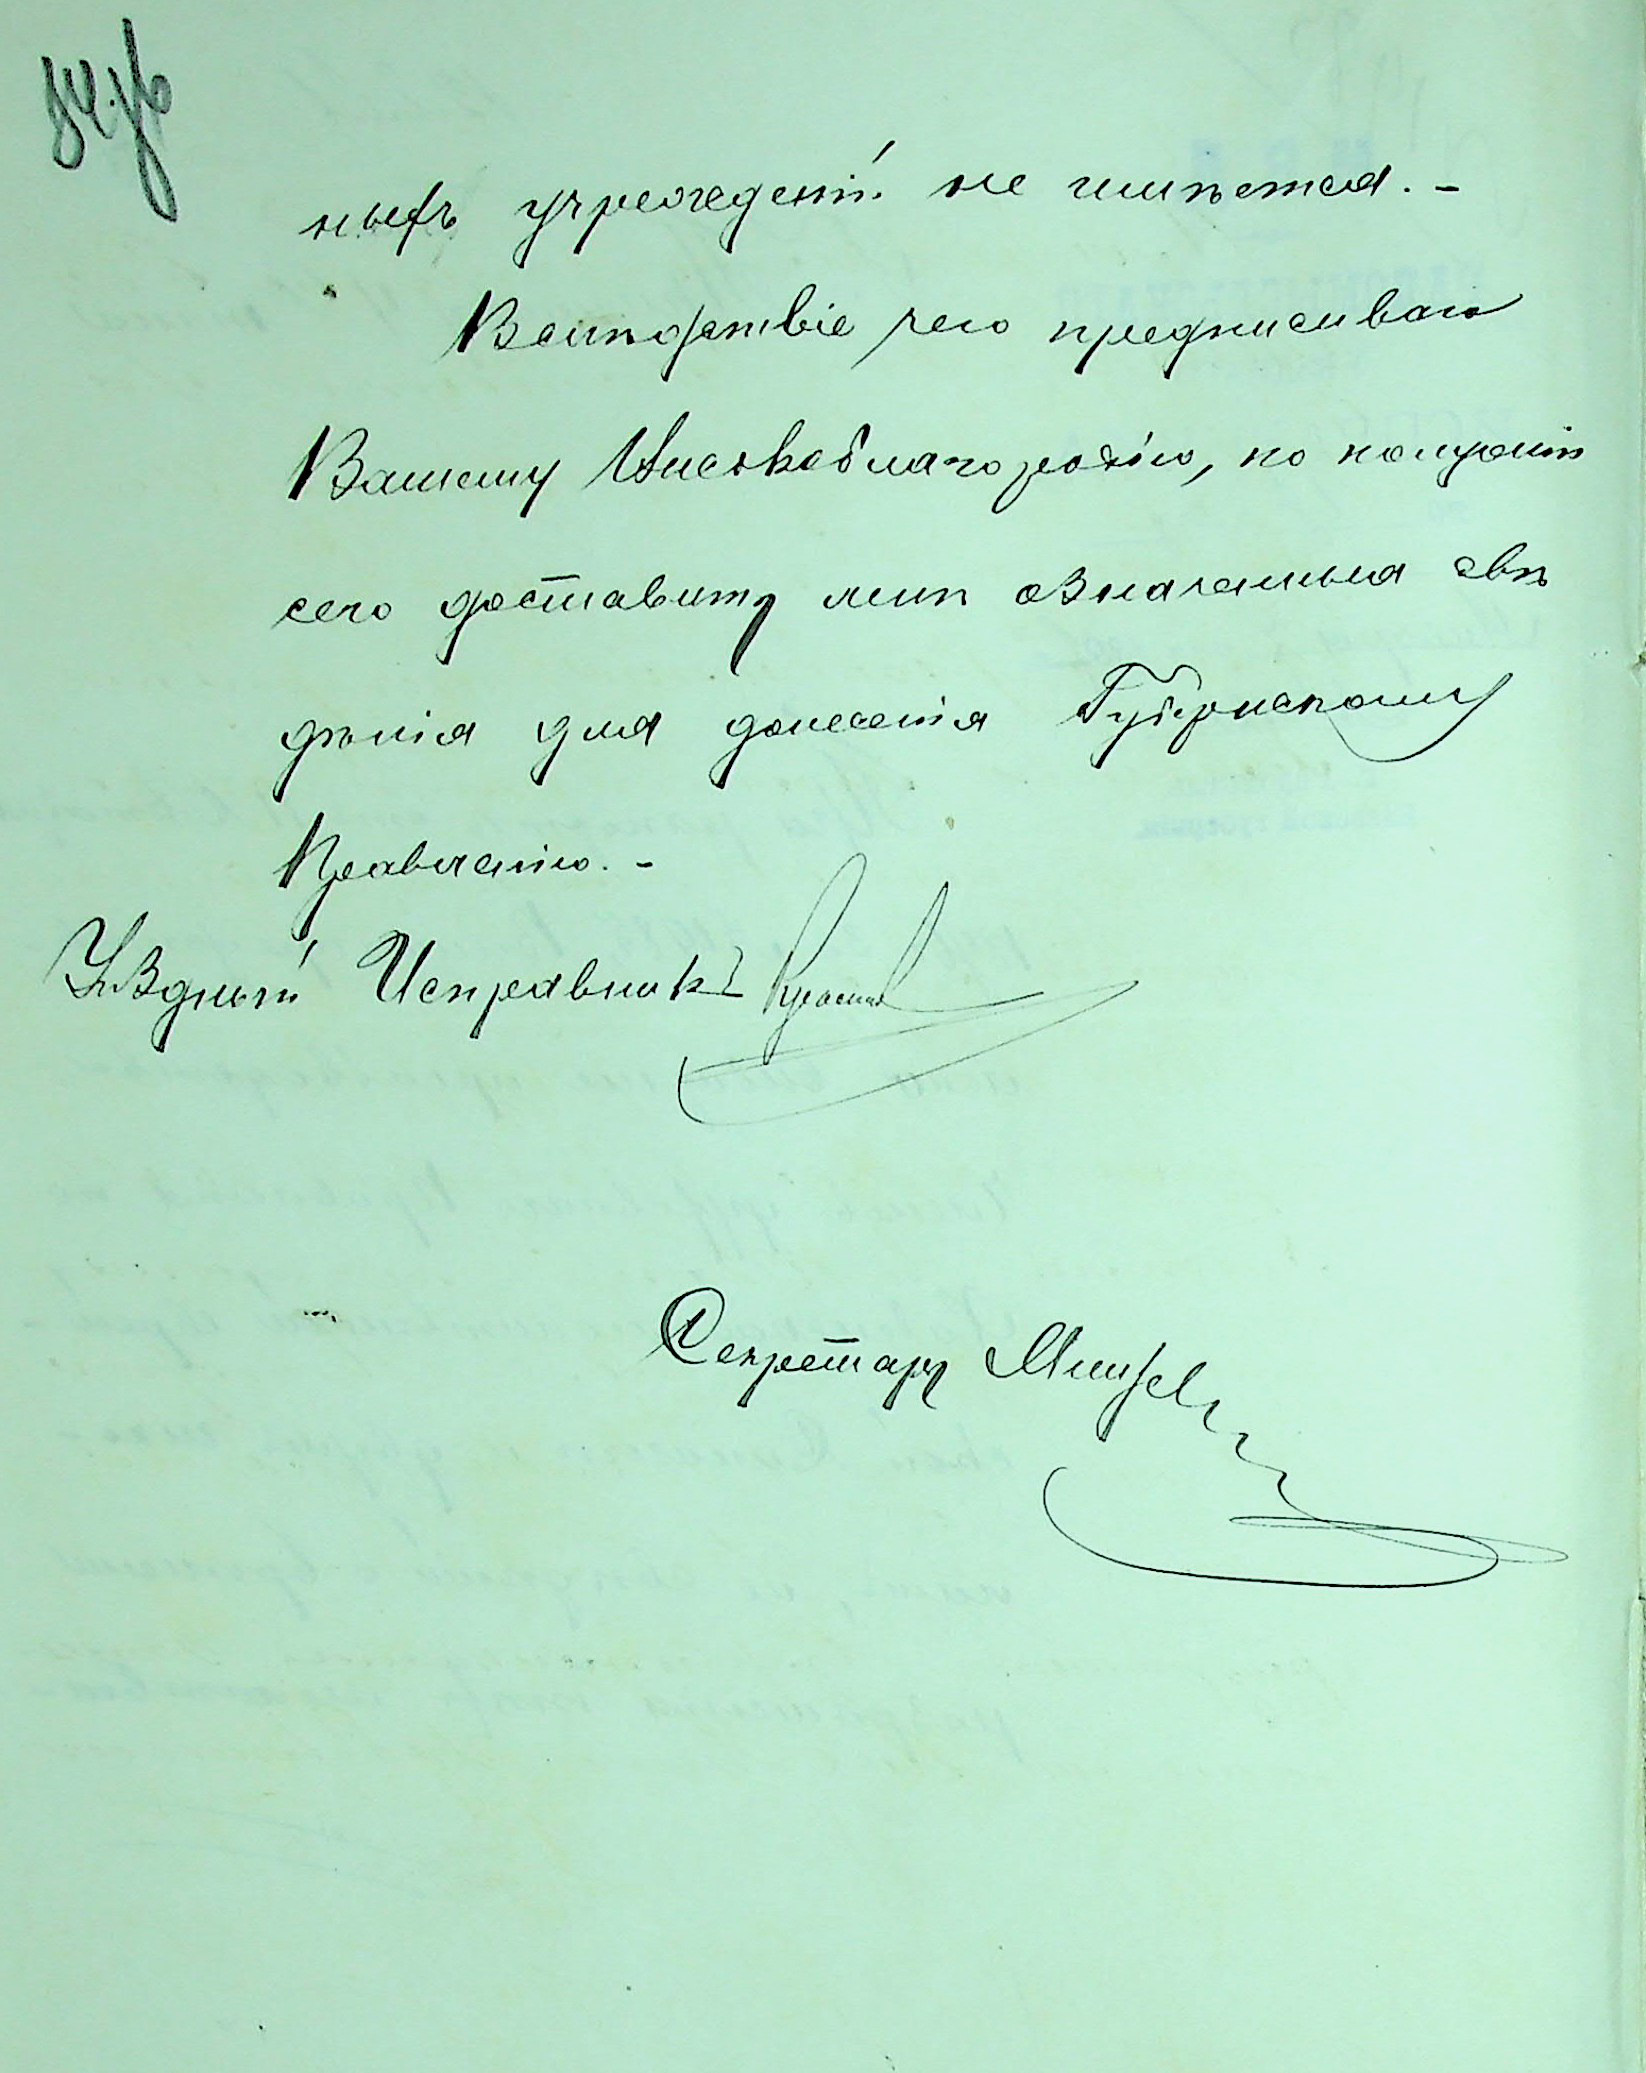 ныхъ учрежденій не имѣется. -
Вслѣдствіе чего предписываю
Вашему Высокоблагородію, по полученіи
сего доставить мнѣ означенныя свѣ
дѣнія для донесенія Губернскому
Правленію. -
Уѣздный Исправникъ
Секретарь